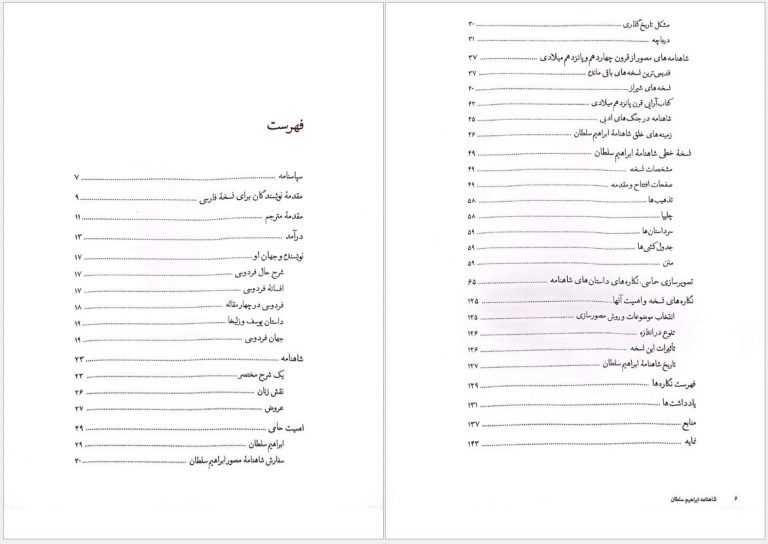 فهرست
سپاسنامه ........ ۷
مقدمهٔ نویسندگان برای نسخهٔ فارسی ........ ۹
مقدمهٔ مترجم ........ ۱۱
درآمد ........ ۱۳
نویسنده و جهان او ........ ۱۷
شرح حال فردوسی ........ ۱۷
افسانهٔ فردوسی ........ ۱۷
فردوسی در چهار مقاله ........ ۱۸
داستان یوسف و زلیخا ........ ۱۹
جهان فردوسی ........ ۱۹
شاهنامه ........ ۲۳
یک شرح مختصر ........ ۲۳
نقش زنان ........ ۲۶
عروض ........ ۲۷
اهمیت حامی ........ ۲۹
ابراهیم سلطان ........ ۲۹
سفارش شاهنامهٔ مصور ابراهیم سلطان ........ ۳۰
مشکل تاریخ‌گذاری ........ ۳۰
دیباچه ........ ۳۱
شاهنامه‌های مصور از قرون چهاردهم و پانزدهم میلادی ........ ۳۷
قدیمی‌ترین نسخه‌های باقی مانده ........ ۳۷
نسخه‌های شیراز ........ ۴۰
کتاب‌آرایی قرن پانزدهم میلادی ........ ۴۲
شاهنامه در جنگ‌های ادبی ........ ۴۵
زمینه‌های خلق شاهنامهٔ ابراهیم سلطان ........ ۴۶
نسخهٔ خطی شاهنامهٔ ابراهیم سلطان ........ ۴۹
مشخصات نسخه ........ ۴۹
صفحات افتتاح و مقدمه ........ ۴۹
تذهیب‌ها ........ ۵۸
چلیپا ........ ۵۸
سرداستان‌ها ........ ۵۹
جدول‌کشی‌ها ........ ۵۹
متن ........ ۵۹
تصویرسازی حماسی: نگاره‌های داستان‌های شاهنامه ........ ۶۵
نگاره‌های نسخه و اهمیت آنها ........ ۱۲۵
انتخاب موضوعات و روش مصورسازی ........ ۱۲۵
تنوع در اندازه ........ ۱۲۶
تأثیرات این نسخه ........ ۱۲۶
تاریخ شاهنامهٔ ابراهیم سلطان ........ ۱۲۷
فهرست نگاره‌ها ........ ۱۲۹
یادداشت‌ها ........ ۱۳۱
منابع ........ ۱۳۷
نمایه ........ ۱۴۳
۶ شاهنامه ابراهیم سلطان